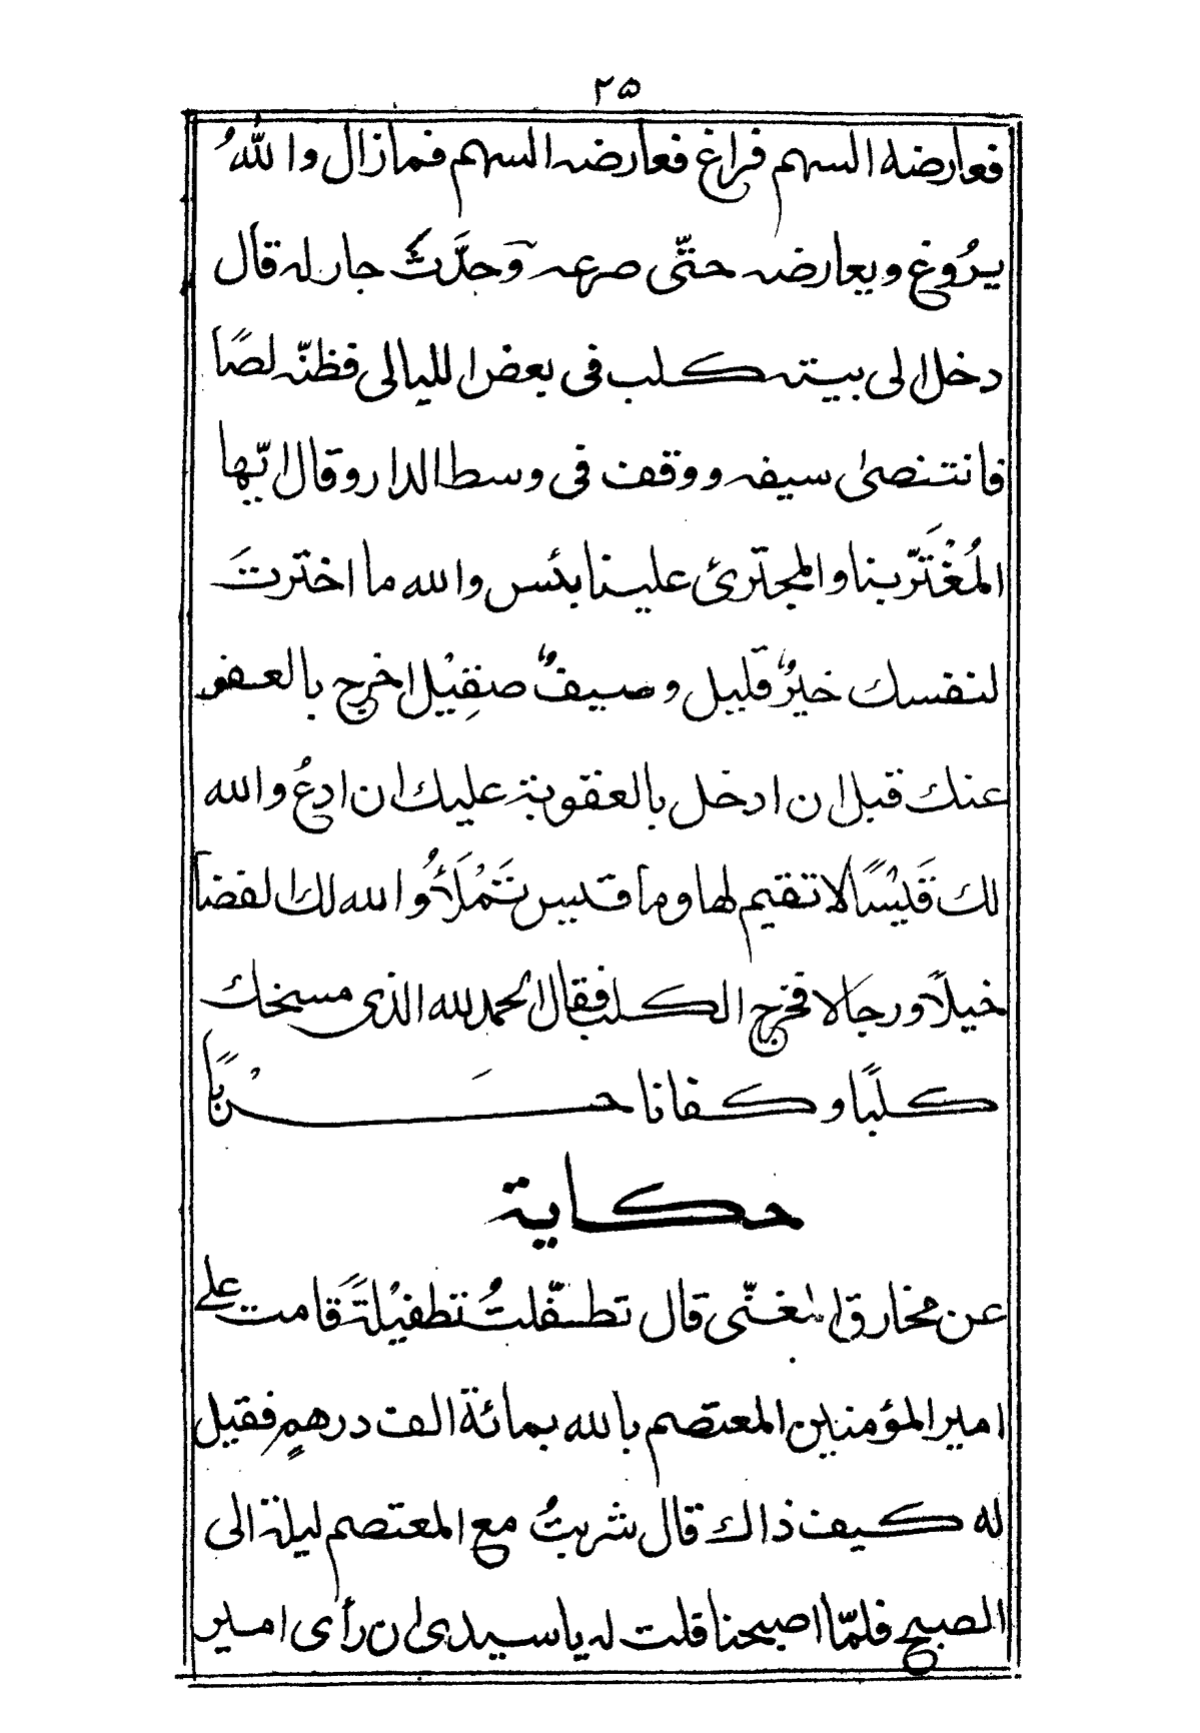 ٢٥
فعارضه السهم فراغ فعارضه السهم فمازال واللهُ
يرُوغ ويعارضه حتّى صرعه وَحدَّثَ جار له قال
دخل الى بيته كلب فى بعض الليالى فظنّه لصًا
فانتضىٰ سيفه ووقف فى وسط الدار وقال ايّها
المُغْتَرّ بنا والمجترئ علينا بئس والله ما اخترتَ
لنفسك خيرٌ قليل وسيفٌ صقِيْل اخرج بالعفو
عنك قبل ان ادخل بالعقوبة عليك ان ادعُ والله
لك قَيْسًا لا تقيم لها وما قيس تَمْلَأُ والله لك الفضا
خيلاً ورجالا فخرج الكلب فقال الحمد لله الذى مسخك
كلبًا وكفانا حَرْبًا
حكاية
عن مخارق المغنّى قال تطفّلتُ تطفيْلةً قامت على
امير المؤمنين المعتصم بالله بمائة الف درهمٍ فقيل
له كيف ذاك قال شربتُ مع المعتصم ليلة الى
الصبح فلمّا اصبحنا قلت له يا سيدى ان رأى امير